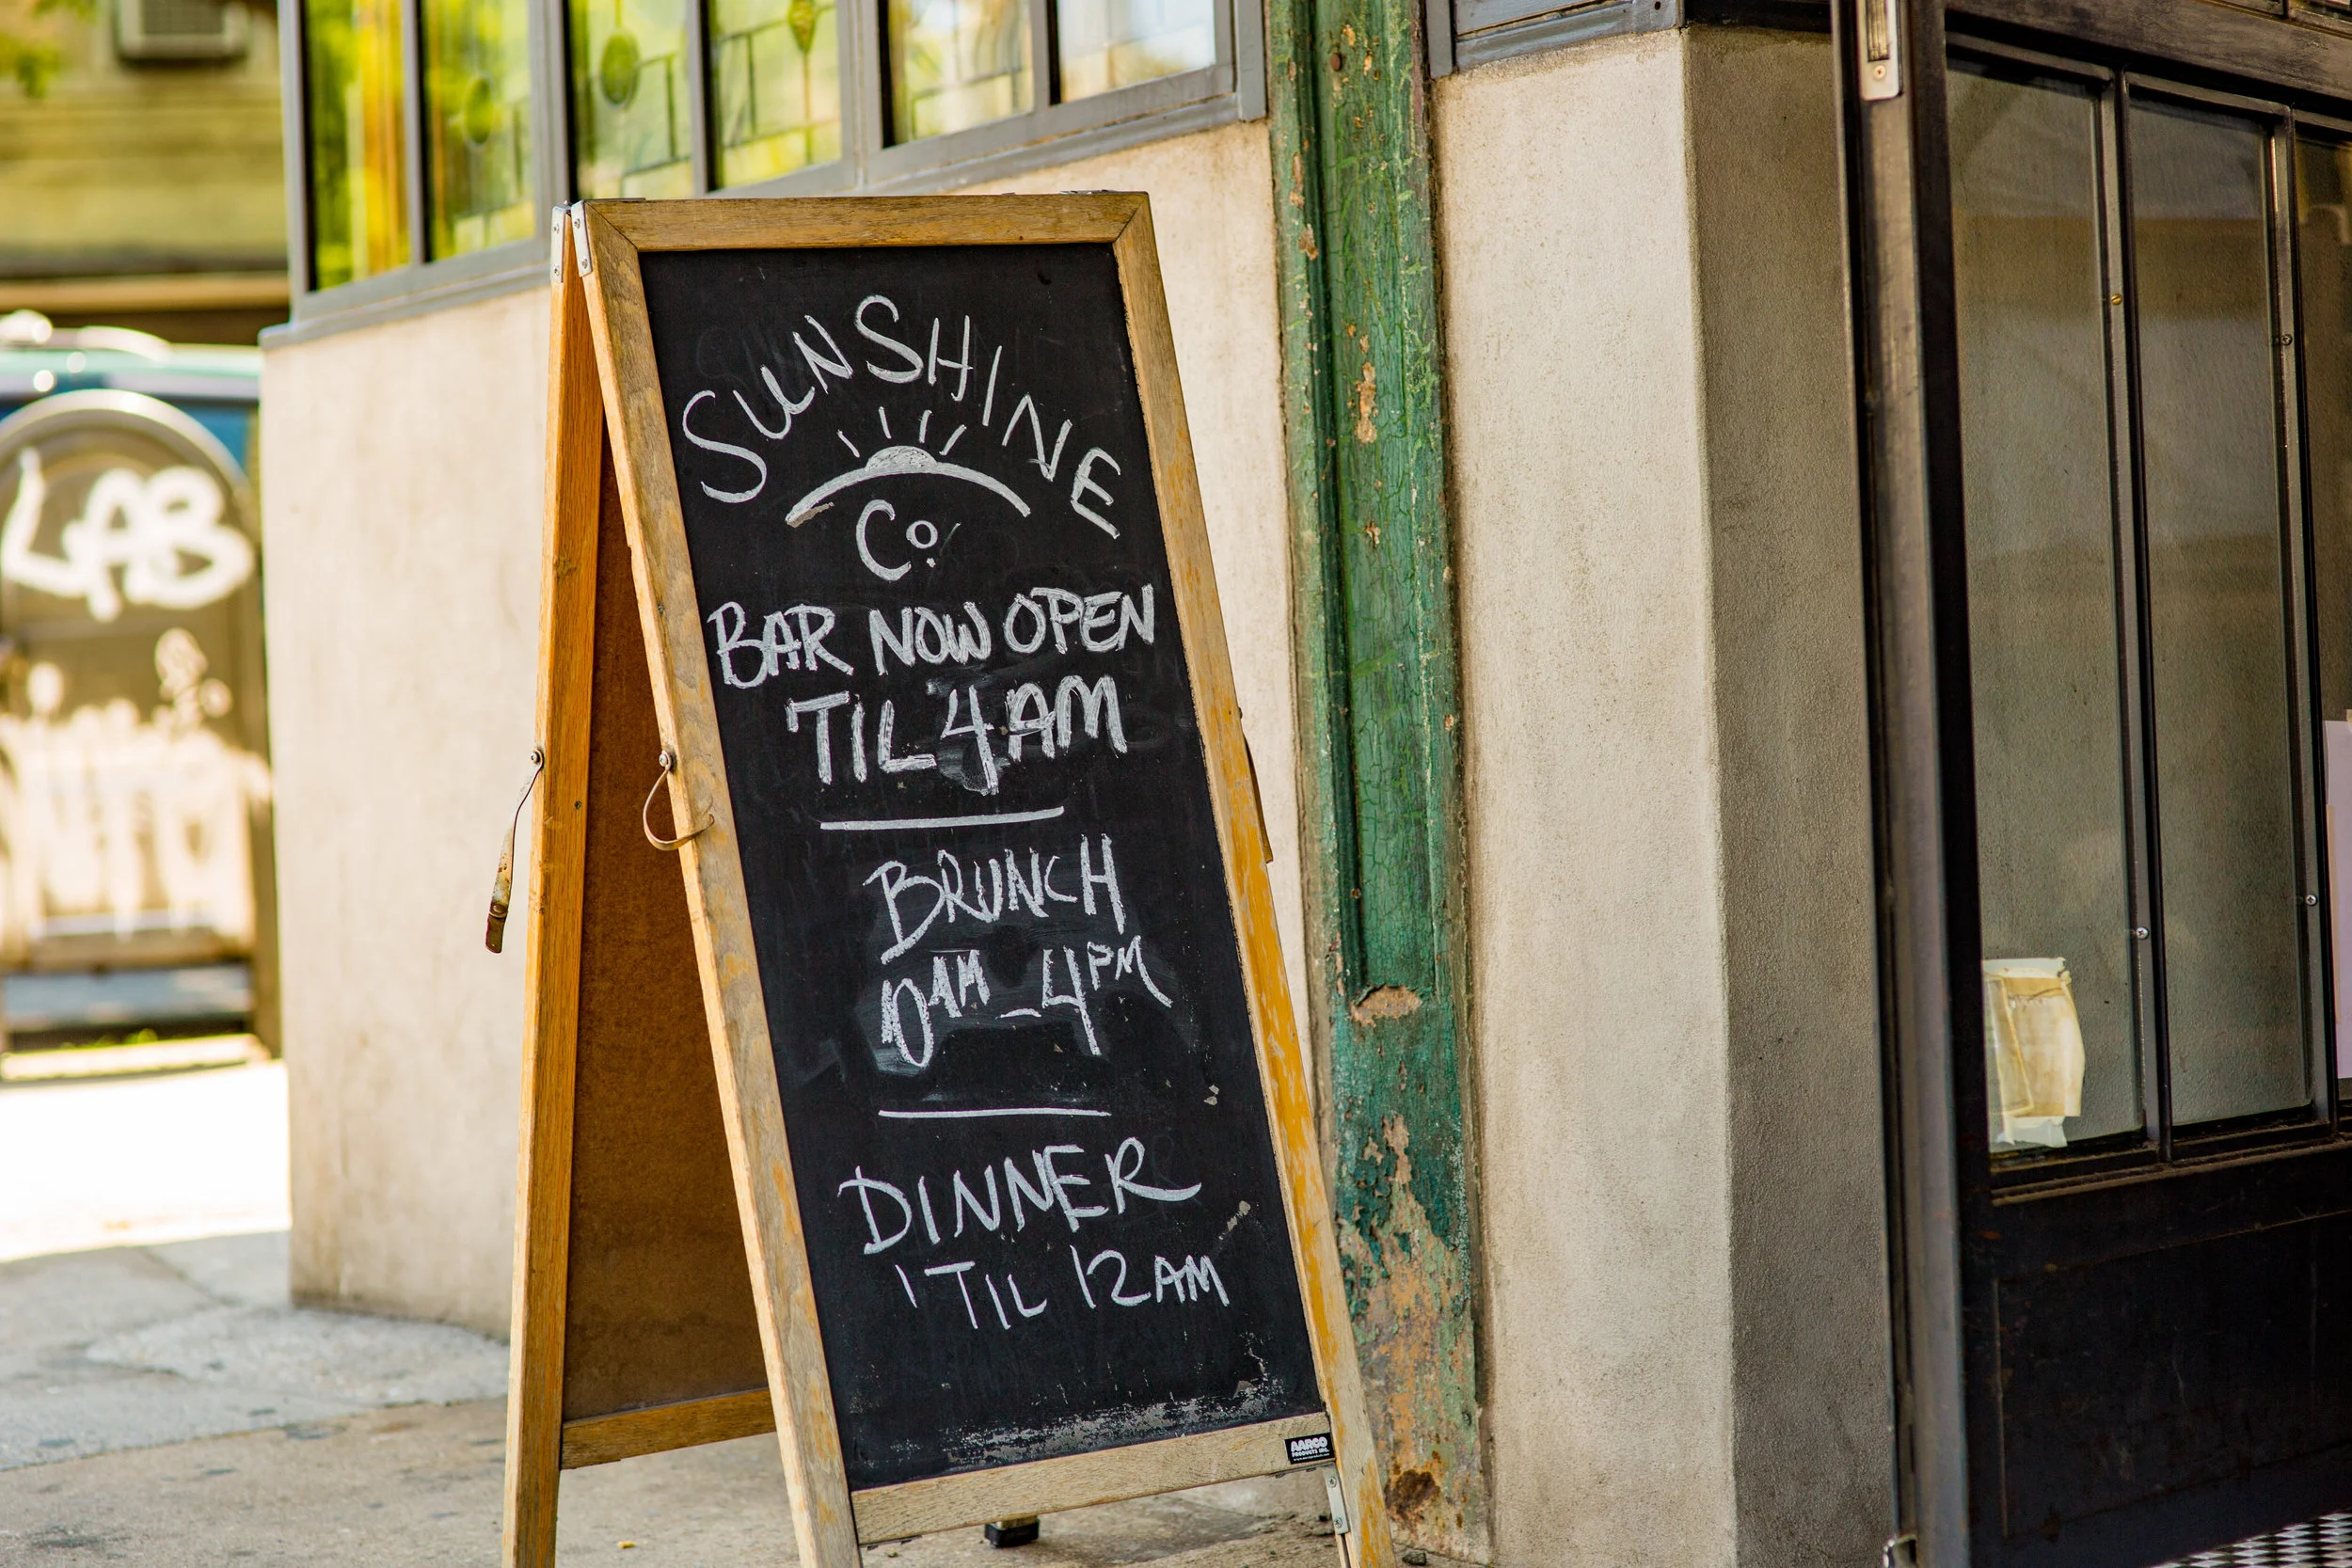 SUNSHINE
Co.
BAR NOW OPEN
TIL 4AM
BRUNCH
10AM - 4PM
DINNER
'TIL 12AM
AARCO
PRODUCTS INC.
LAB